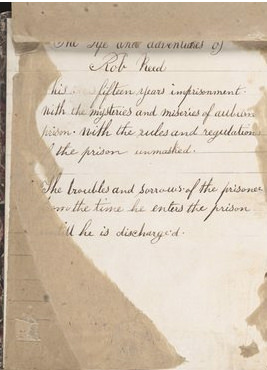 The Life and adventures of
Rob Reed
his fifteen years imprisonment
with the mysteries and miseries of auburn
prison. With the rules and regulations
of the prison unmasked.
The troubles and sorrows of the prisoner
from the time he enters the prison
till he is discharged.